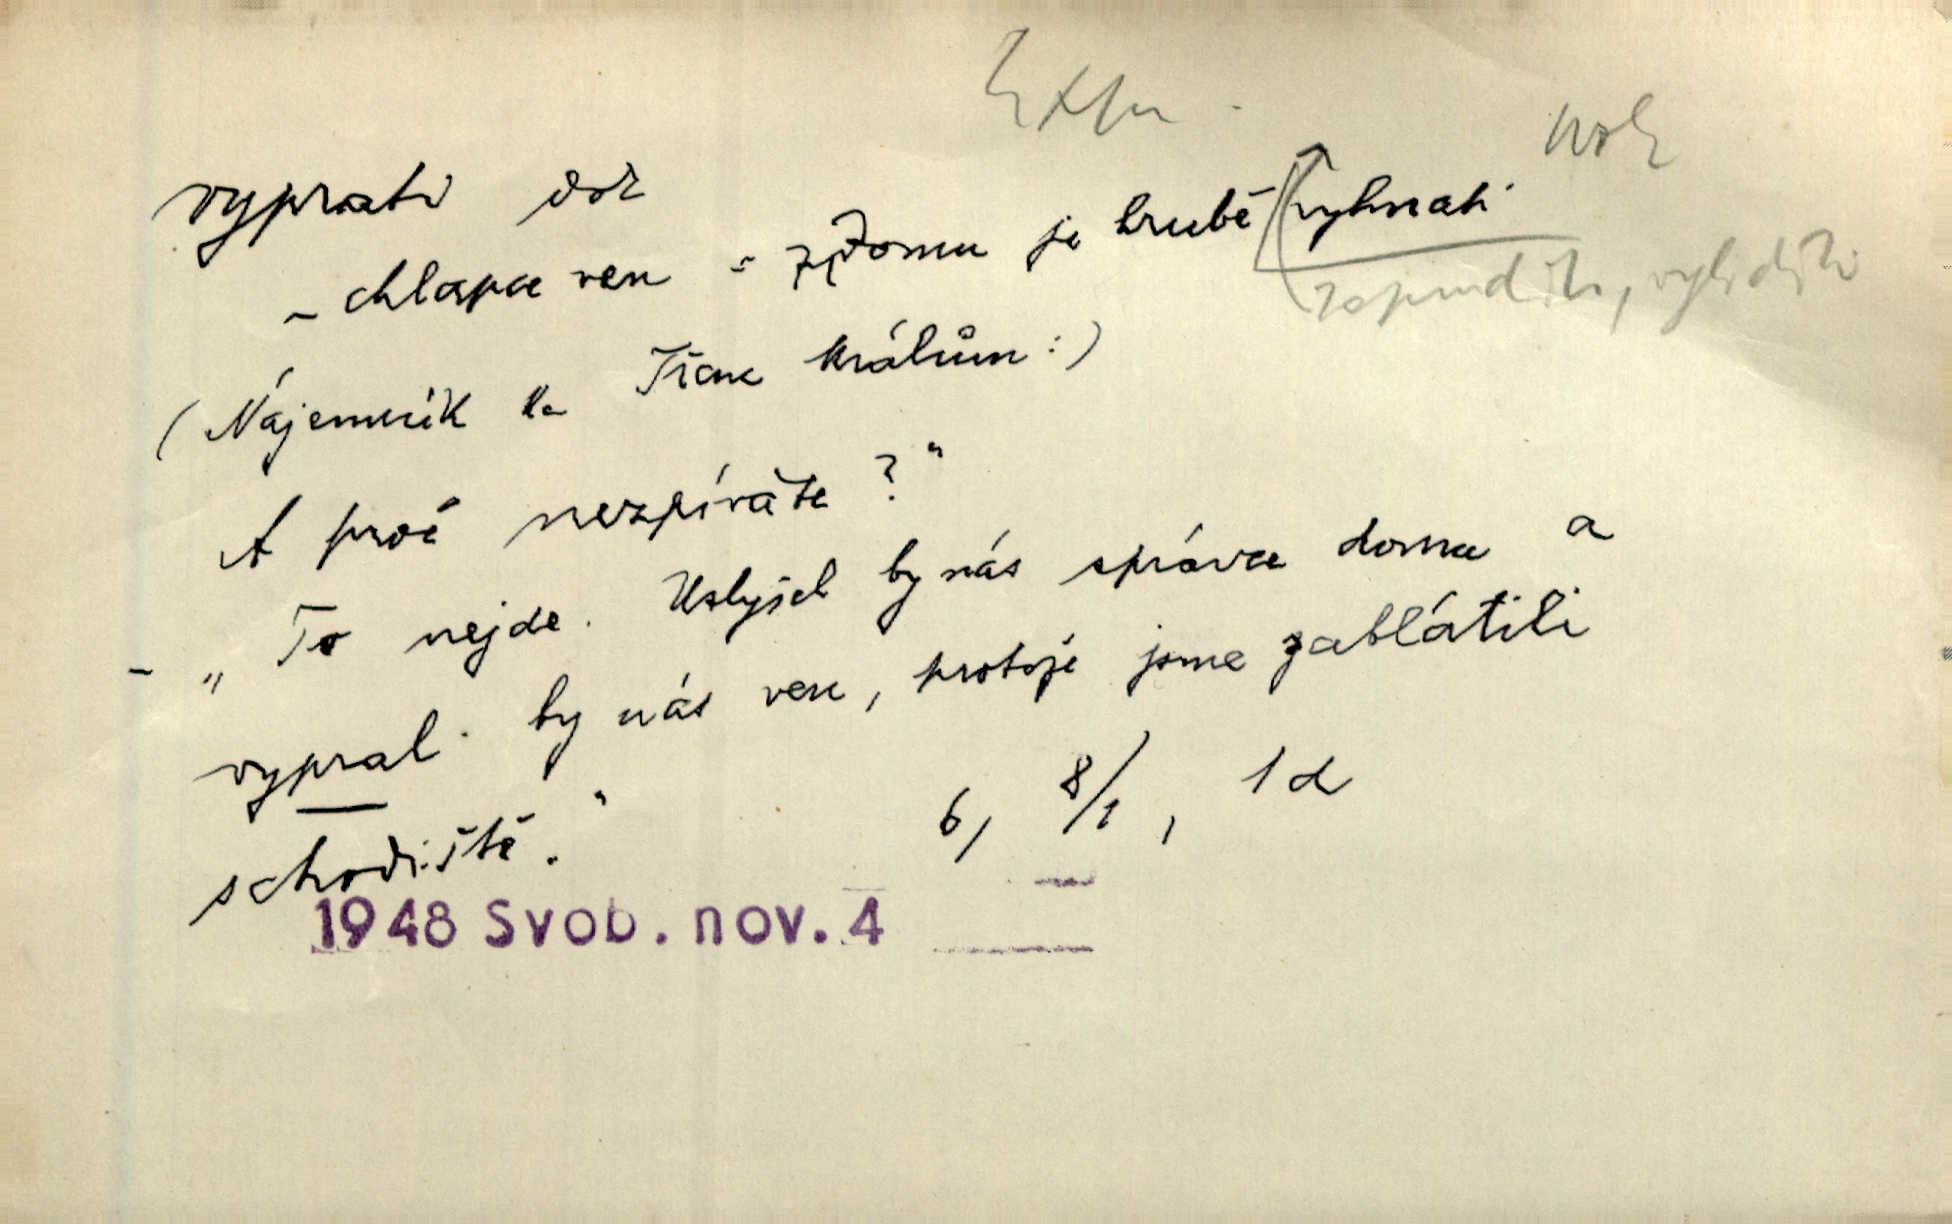 Expr.
vyprati dok
~ chlapa ven = z domu je hrubě vyhnati
zapuditi, vyhoditi
(Nájemník ke Třem králům:)
A proč nezpíváte?"
- „To nejde. Uslyšel by nás správce domu a
vypral by nás ven, protože jsme zablátili
schodiště."
6, 8/1, 1d
1948 Svob. nov. 4